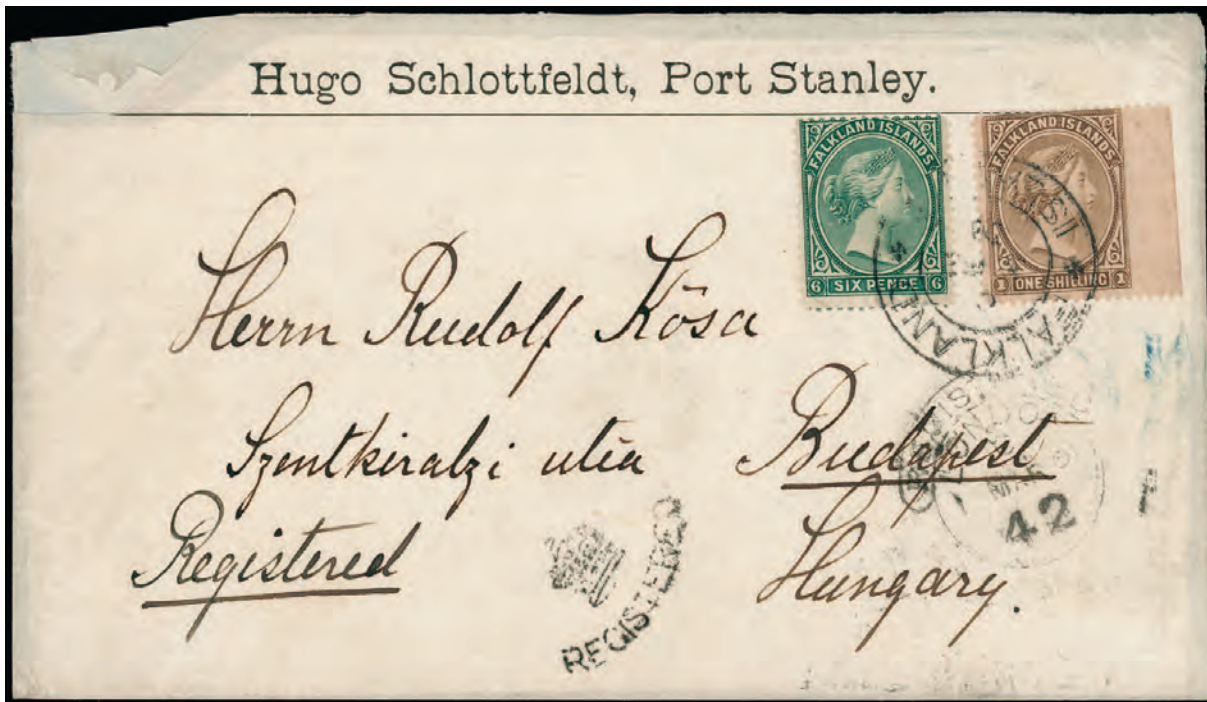 Hugo Schlottfeldt, Port Stanley.
FALKLAND ISLANDS
6 SIX PENCE 6
FALKLAND ISLANDS
1 ONE SHILLING 1
Herrn Rudolf Kōsa
Szentkiralzi utca Budapest
Registered Hungary.
REGISTERED
42